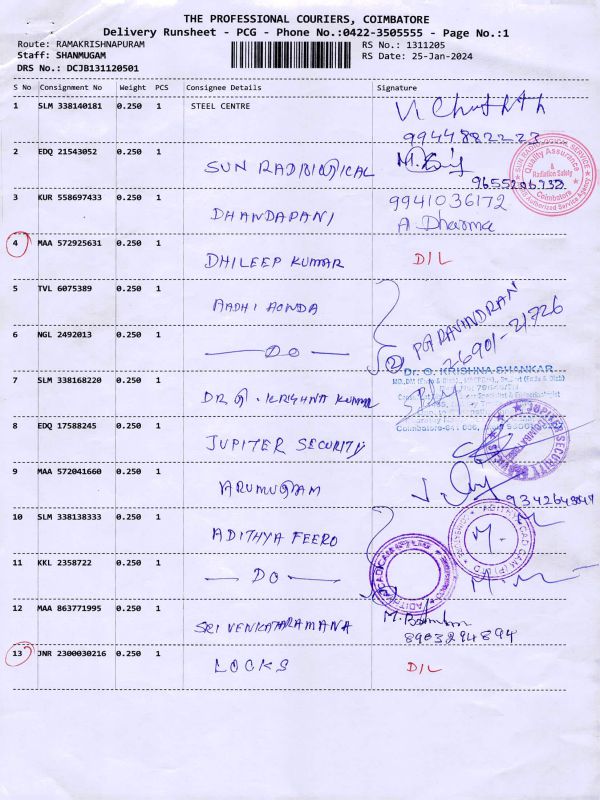 THE PROFESSIONAL COURIERS, COIMBATORE
Delivery Runsheet - PCG - Phone No.:0422-3505555 - Page No.:1
Route: RAMAKRISHNAPURAM RS No.: 1311205
Staff: SHANMUGAM RS Date: 25-Jan-2024
DRS No.: DCJB131120501
S No Consignment No Weight PCS Consignee Details Signature
1 SLM 338140181 0.250 1 STEEL CENTRE
9944882223
2 EDQ 21543052 0.250 1 SUN RADIOLOGICAL
9655206932
Quality Assurance
&
Radiation Safety
Coimbatore
3 KUR 558697433 0.250 1 DHANDAPANI 9941036172
A Dharma
4 MAA 572925631 0.250 1 DHILEEP KUMAR D/L
5 TVL 6075389 0.250 1 AADHI HONDA
6 NGL 2492013 0.250 1 — DO — (2) PG RAVINDRAN
26901-21726
7 SLM 338168220 0.250 1 DR G. KRISHNA KUMAR
Dr. G. KRISHNA SHANKAR
8 EDQ 17588245 0.250 1 JUPITER SECURITY
JUPITER SECURITY
9 MAA 572041660 0.250 1 ARUMUGAM
10 SLM 338138333 0.250 1 ADITHYA FEERO
11 KKL 2358722 0.250 1 — DO —
12 MAA 863771995 0.250 1 SRI VENKATARAMANA
8903294894
13 JNR 2300030216 0.250 1 LOCKS D/L